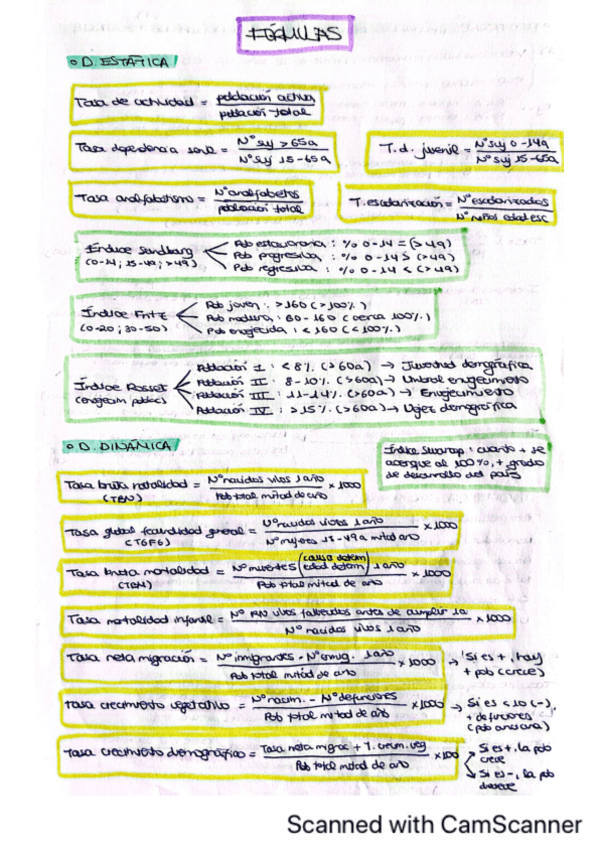 FÓRMULAS
D. ESTÁTICA
Tasa de actividad = población activa / población total
Tasa dependencia senil = Nº suj > 65a / Nº suj 15-65a
T.d. juvenil = Nº suj 0-14a / Nº suj 15-65a
Tasa analfabetismo = Nº analfabetos / población total
T. escolarización = Nº escolarizados / Nº niños edad esc
Índice Sundbarg (0-14; 15-49; >49)
Pob estacionaria : % 0-14 = (>49)
Pob progresiva : % 0-14 > (>49)
Pob regresiva : % 0-14 < (>49)
Índice Fritz (0-20; 30-50)
Pob joven : >160 (>100%)
Pob madura : 60-160 (cerca 100%)
Pob envejecida : <160 (<100%)
Índice Rosset (envejecim poblac)
Población I : <8% (>60a) → Juventud demográfica
Población II : 8-10% (>60a) → Umbral envejecimiento
Población III : 11-14% (>60a) → Envejecimiento
Población IV : >15% (>60a) → Vejez demográfica
D. DINÁMICA
Índice Swarop : cuanto + se
acerque al 100%, + grado
de desarrollo del país
Tasa bruta natalidad (TBN) = Nº nacidos vivos 1 año / Pob total mitad de año x 1000
Tasa global fecundidad general (TGFG) = Nº nacidos vivos 1 año / Nº mujeres 15-49a mitad año x 1000
Tasa bruta mortalidad (TBM) = Nº muertes (causa determ / edad determ) 1 año / Pob total mitad de año x 1000
Tasa mortalidad infantil = Nº RN vivos fallecidos antes de cumplir 1a / Nº nacidos vivos 1 año x 1000
Tasa neta migración = Nº inmigrantes - Nº emig. 1 año / Pob total mitad de año x 1000 → Si es +, hay + pob (crece)
Tasa crecimiento vegetativo = Nº nacim. - Nº defunciones / Pob total mitad de año x 1000 → Si es <10 (-), + defunciones (pob anciana)
Tasa crecimiento demográfico = Tasa neta migrac + T. crecim. veg / Pob total mitad de año x 100
Si es +, la pob crece
Si es -, la pob decrece
Scanned with CamScanner